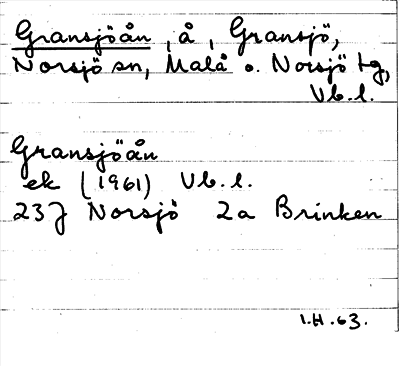 Gransjöån, å, Gransjö,
Norsjö sn, Malå o. Norsjö tg,
Vb.l.
Gransjöån
ek (1961) Vb.l.
23J Norsjö 2a Brinken
I.H.63.